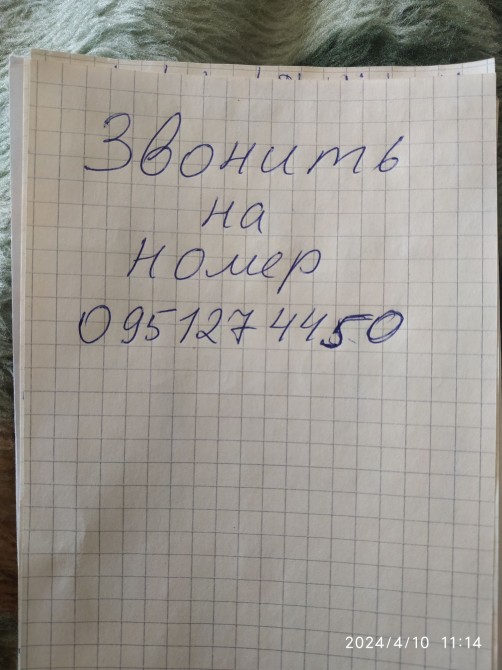 Звонить
на
номер
0951274450
2024/4/10 11:14